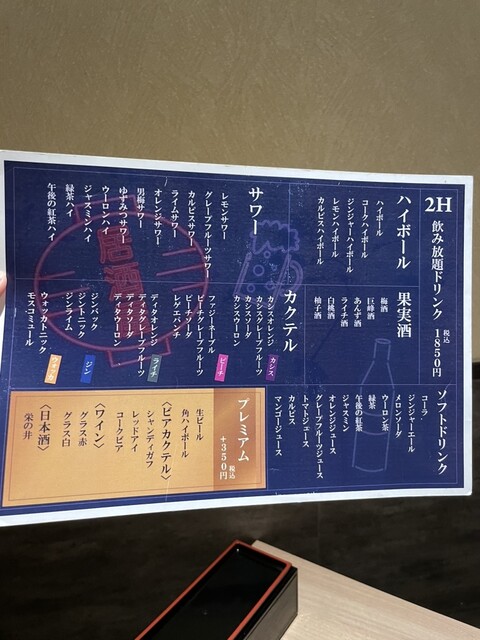 2H 飲み放題ドリンク 税込 1850円
ハイボール
ハイボール
コークハイボール
ジンジャーハイボール
レモンハイボール
カルピスハイボール
果実酒
梅酒
巨峰酒
あんず酒
ライチ酒
白桃酒
柚子酒
ソフトドリンク
コーラ
ジンジャーエール
メロンソーダ
ウーロン茶
緑茶
午後の紅茶
ジャスミン
オレンジジュース
グレープフルーツジュース
トマトジュース
カルピス
マンゴージュース
サワー
レモンサワー
グレープフルーツサワー
カルピスサワー
ライムサワー
オレンジサワー
男梅サワー
ゆずみつサワー
ウーロンハイ
ジャスミンハイ
緑茶ハイ
午後の紅茶ハイ
カクテル
カシス
カシスオレンジ
カシスグレープフルーツ
カシスソーダ
カシスウーロン
ピーチ
ファジーネーブル
ピーチグレープフルーツ
ピーチソーダ
レゲエパンチ
ライチ
ディタオレンジ
ディタグレープフルーツ
ディタソーダ
ディタウーロン
ジン
ジンバック
ジントニック
ジンライム
ウォッカ
ウォッカトニック
モスコミュール
プレミアム 税込 +350円
生ビール
角ハイボール
〈ビアカクテル〉
シャンディガフ
レッドアイ
コークビア
〈ワイン〉
グラス赤
グラス白
〈日本酒〉
栄の井
居酒